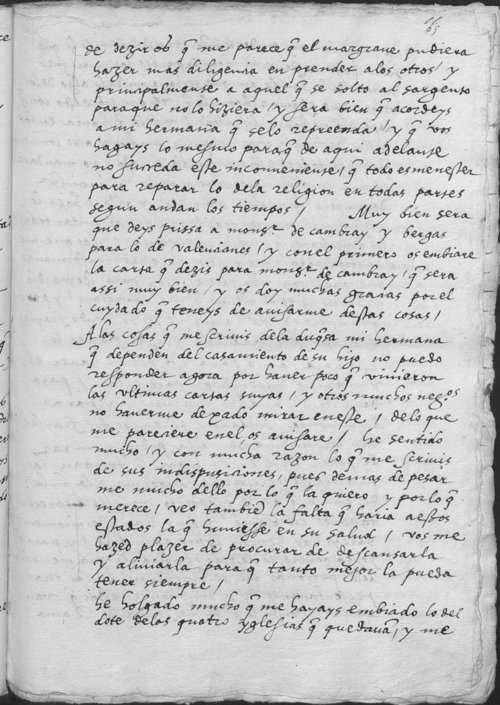 65
de dezir os q me parece q el margrave pudiera
hazer mas diligencia en prender a los otros / y
principalmente a aquel q se solto al sargento
para que no lo hiziera / y sera bien q acordeys
a mi hermana q se lo reprenda / y q vos
hagays lo mesmo para q de aqui adelante
no suceda este inconueniente / q todo es menester
para reparar lo de la religion en todas partes
segun andan los tiempos / Muy bien sera
que deys prissa a monsr de cambray y bergas
para lo de valencianes / y con el primero os embiare
la carta q dezis para monsr de cambray / q sera
assi muy bien / y os doy muchas gracias por el
cuydado q teneys de auisarme destas cosas /
A las cosas q me scriuis de la duqsa mi hermana
q dependen del casamiento de su hijo no puedo
responder agora por hauer poco q vinieron
las vltimas cartas suyas / y otros muchos negos
no hauerme dexado mirar en este / de lo que
me pareciere en el os auisare / he sentido
mucho / y con mucha razon lo q me scriuis
de sus indispusiciones, pues demas de pesar
me mucho dello por lo q la quiero y por lo q
merece / veo tambie la falta q haria a essos
estados la q huuiesse en su salud / vos me
hazed plazer de procurar de descansarla
y aliuiarla para q tanto mejor la pueda
tener siempre /
he holgado mucho q me hayays embiado lo del
dote de las quatro yglesias q quedaua, y me